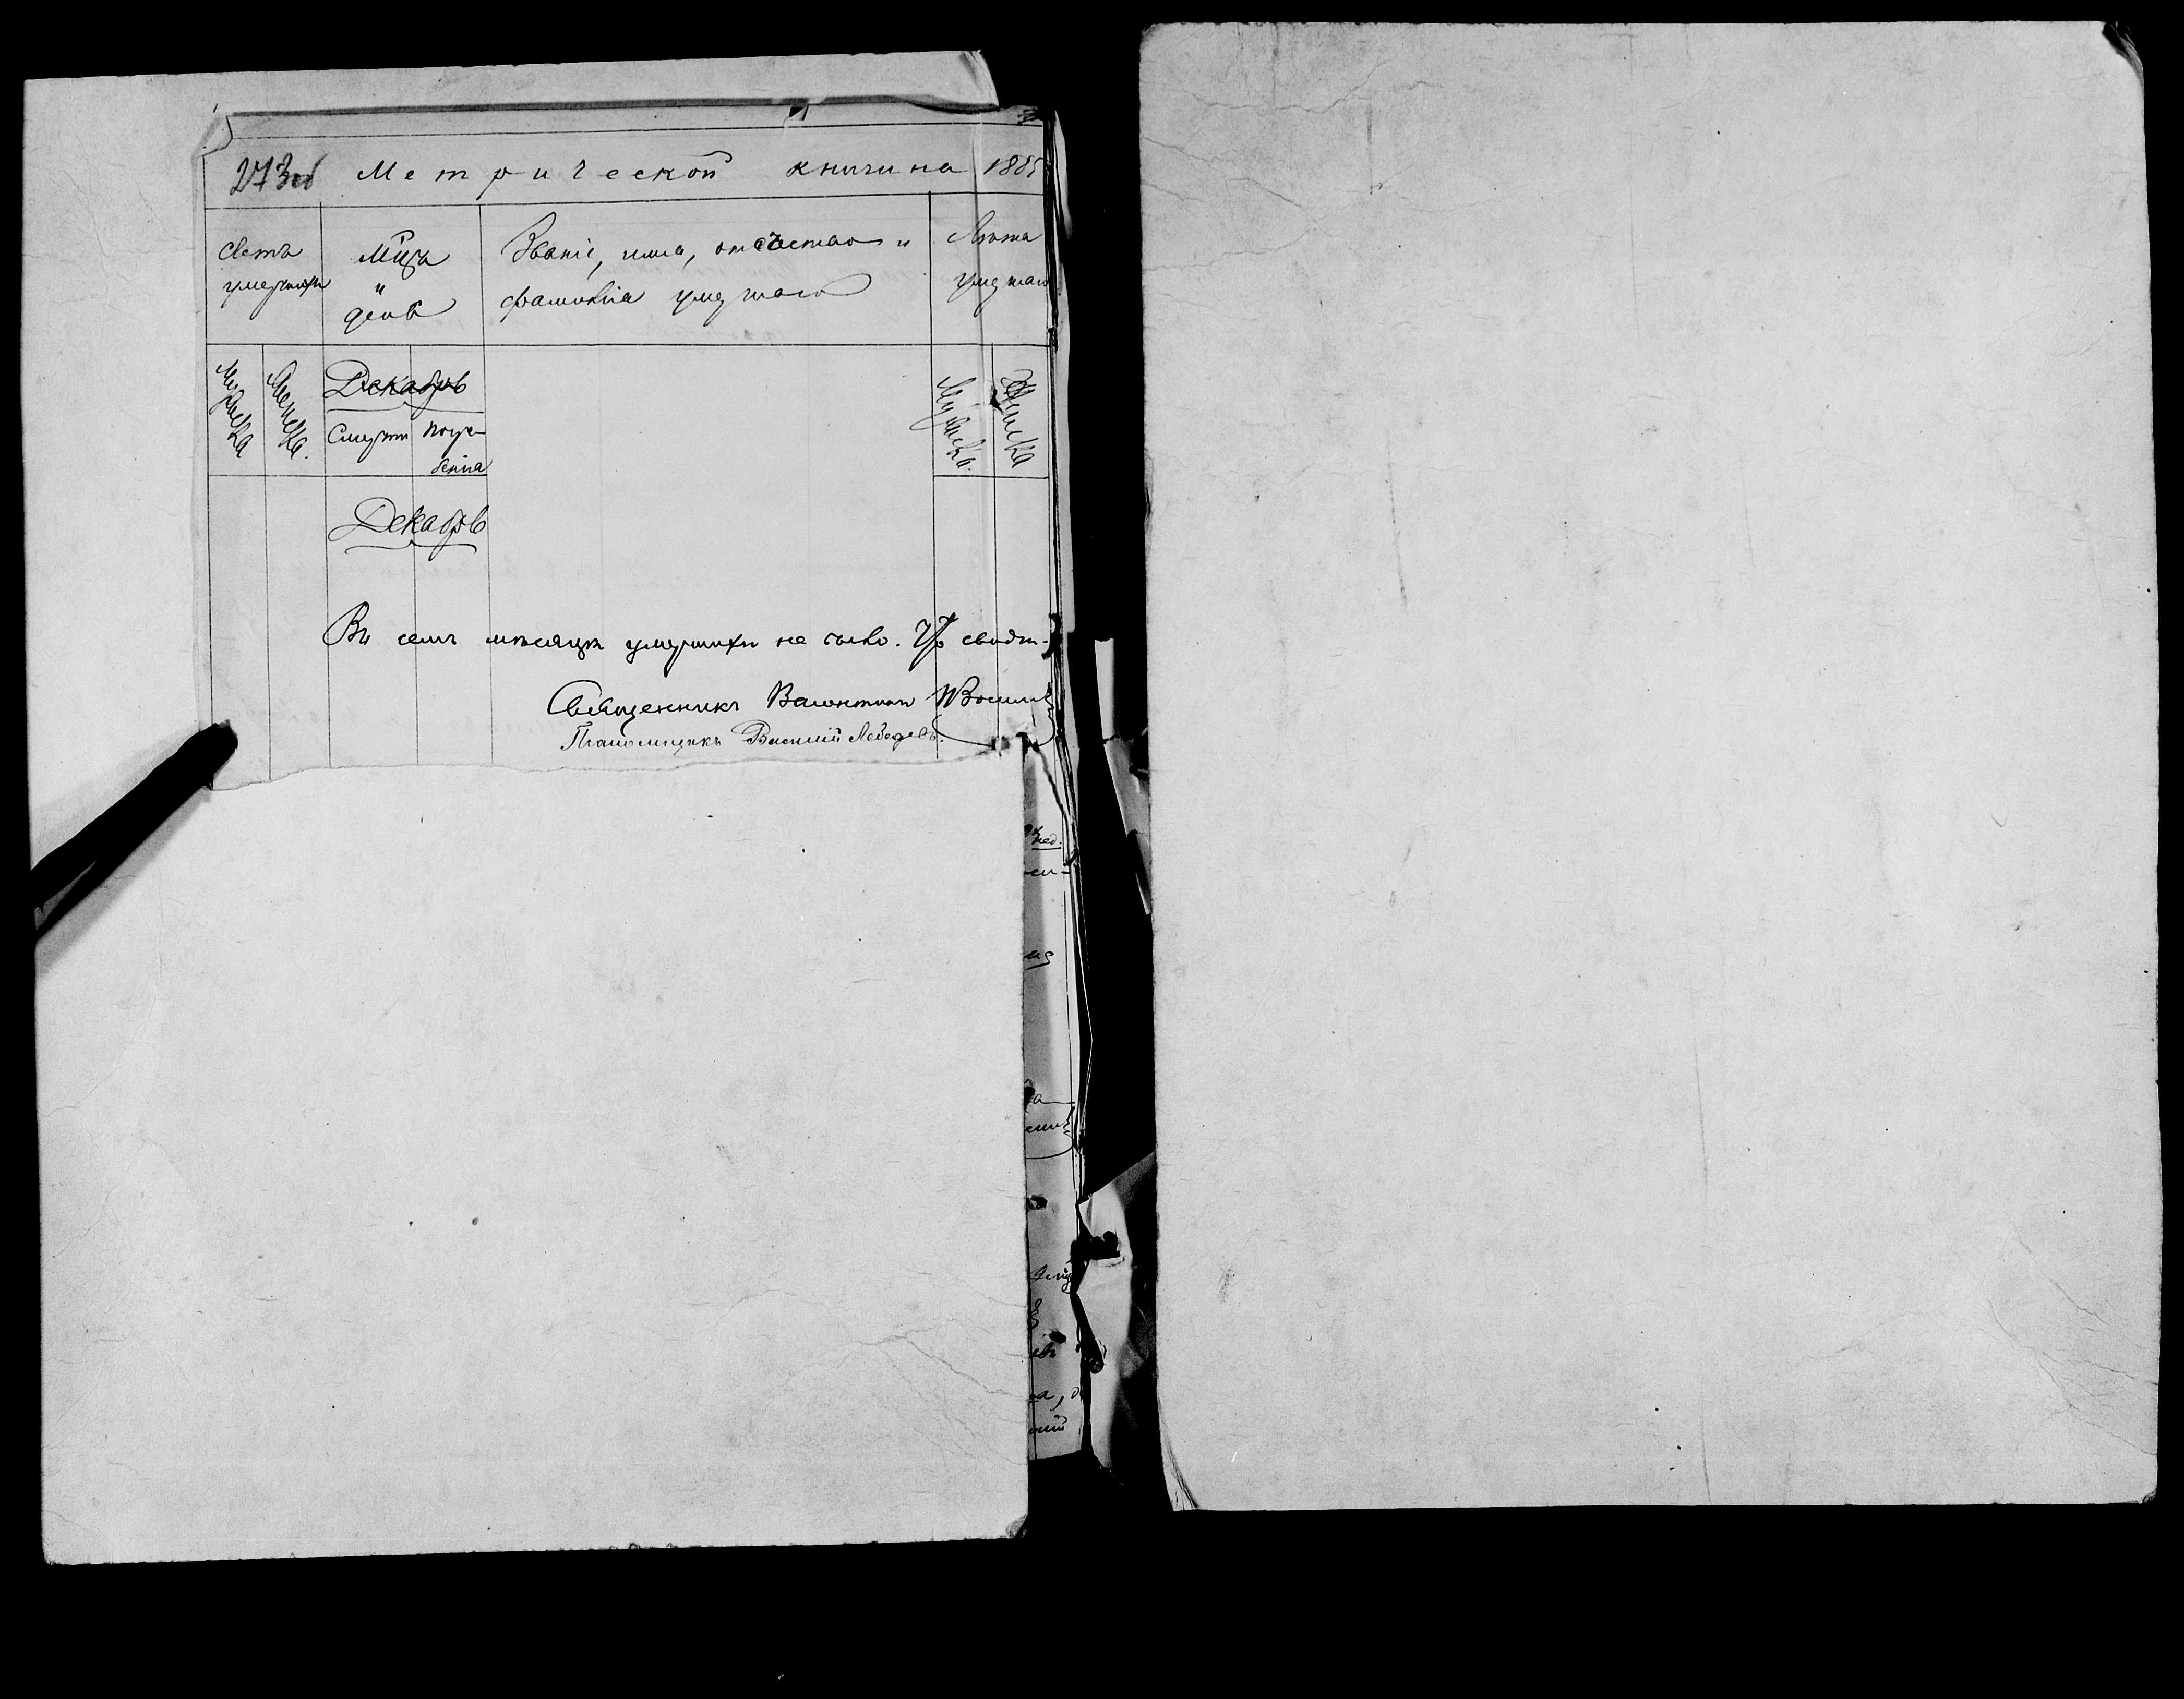 273об Метрической книги на 1885
Счетъ умершихъ
Мцъ и день
Званіе, имя, отчество и
фамилія умершаго
Лѣта умершаго
Мужеска Женска.
Декабрь
Смерти Погре-
бенія
Мужеска. Женска
Декабрь
Въ семъ мѣсяцѣ умершихъ не было. Въ
Священникъ Валентинъ
Псаломщикъ Василій Лебедевъ.